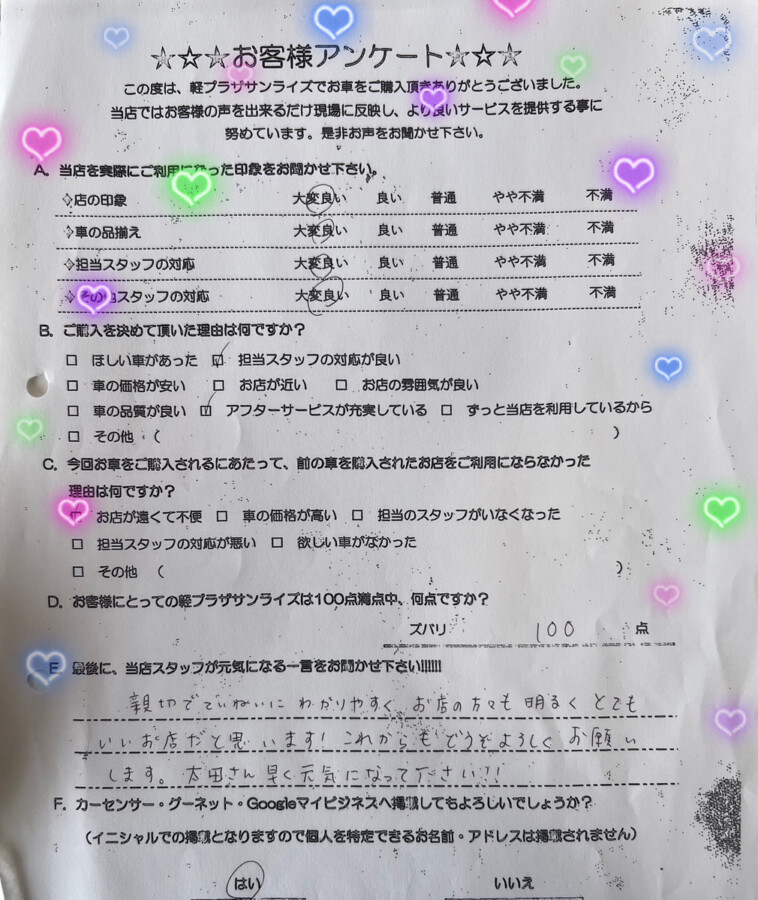 ☆☆☆お客様アンケート☆☆☆
この度は、軽プラザサンライズでお車をご購入頂きありがとうございました。
当店ではお客様の声を出来るだけ現場に反映し、より良いサービスを提供する事に
努めています。是非お声をお聞かせ下さい。
A. 当店を実際にご利用になった印象をお聞かせ下さい。
◇店の印象 大変良い 良い 普通 やや不満 不満
◇車の品揃え 大変良い 良い 普通 やや不満 不満
◇担当スタッフの対応 大変良い 良い 普通 やや不満 不満
◇その他スタッフの対応 大変良い 良い 普通 やや不満 不満
B. ご購入を決めて頂いた理由は何ですか？
□ ほしい車があった ☑ 担当スタッフの対応が良い
□ 車の価格が安い □ お店が近い □ お店の雰囲気が良い
□ 車の品質が良い ☑ アフターサービスが充実している □ ずっと当店を利用しているから
□ その他 ( )
C. 今回お車をご購入されるにあたって、前の車を購入されたお店をご利用にならなかった
理由は何ですか？
□ お店が遠くて不便 □ 車の価格が高い □ 担当のスタッフがいなくなった
□ 担当スタッフの対応が悪い □ 欲しい車がなかった
□ その他 ( )
D. お客様にとっての軽プラザサンライズは100点満点中、何点ですか？
ズバリ 100 点
E. 最後に、当店スタッフが元気になる一言をお聞かせ下さい!!!!!!
親切でていねいにわかりやすく お店の方々も明るくとても
いいお店だと思います! これからもどうぞよろしくお願い
します。太田さん早く元気になって下さい!!
F. カーセンサー・グーネット・Googleマイビジネスへ掲載してもよろしいでしょうか？
(イニシャルでの掲載となりますので個人を特定できるお名前・アドレスは掲載されません)
はい いいえ